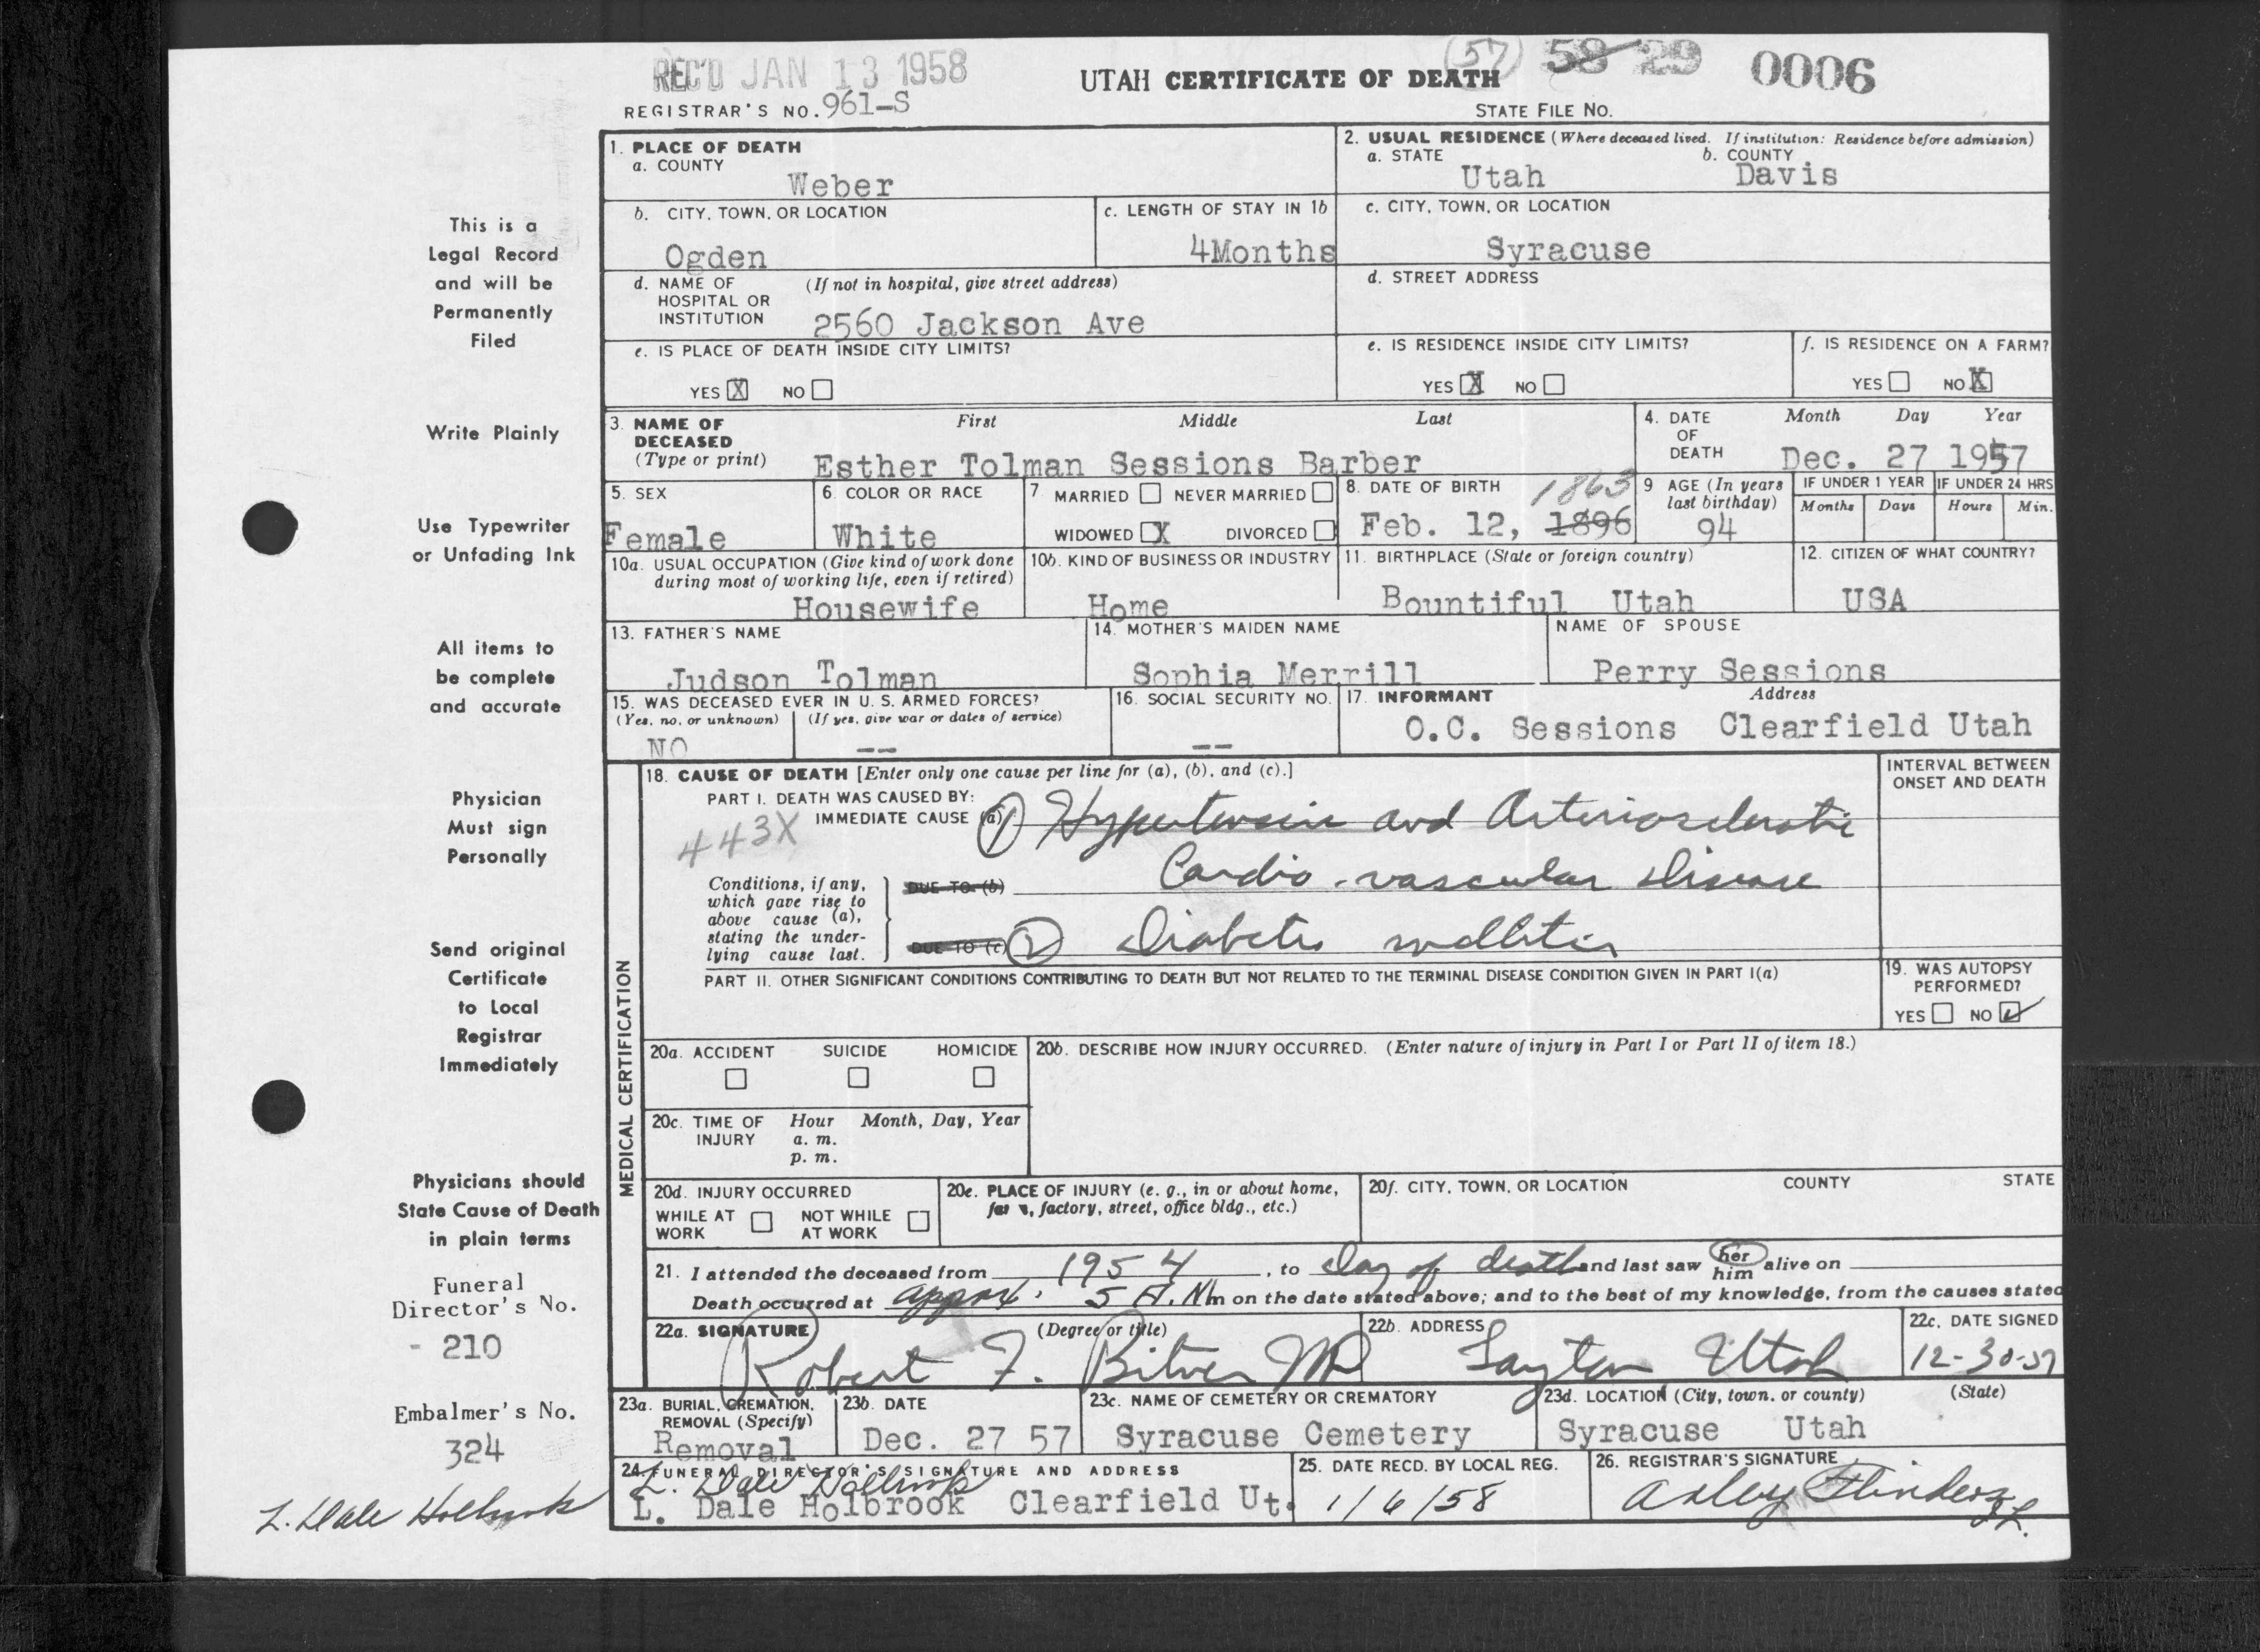 REC'D JAN 13 1958
(57) 58 29 0006
UTAH CERTIFICATE OF DEATH
REGISTRAR'S NO. 961-S
STATE FILE NO.
This is a
Legal Record
and will be
Permanently
Filed
Write Plainly
Use Typewriter
or Unfading Ink
All items to
be complete
and accurate
Physician
Must sign
Personally
Send original
Certificate
to Local
Registrar
Immediately
Physicians should
State Cause of Death
in plain terms
Funeral
Director's No.
- 210
Embalmer's No.
324
L. Dale Holbrook
1. PLACE OF DEATH
a. COUNTY
Weber
2. USUAL RESIDENCE (Where deceased lived. If institution: Residence before admission)
a. STATE b. COUNTY
Utah Davis
b. CITY, TOWN, OR LOCATION
Ogden
c. LENGTH OF STAY IN 1b
4Months
c. CITY, TOWN, OR LOCATION
Syracuse
d. NAME OF (If not in hospital, give street address)
HOSPITAL OR
INSTITUTION 2560 Jackson Ave
d. STREET ADDRESS
e. IS PLACE OF DEATH INSIDE CITY LIMITS?
YES X NO
e. IS RESIDENCE INSIDE CITY LIMITS?
YES X NO
f. IS RESIDENCE ON A FARM?
YES NO X
3. NAME OF First Middle Last
DECEASED
(Type or print) Esther Tolman Sessions Barber
4. DATE Month Day Year
OF
DEATH Dec. 27 1957
5. SEX
Female
6. COLOR OR RACE
White
7 MARRIED NEVER MARRIED
WIDOWED X DIVORCED
8. DATE OF BIRTH 1863
Feb. 12, 1896
9 AGE (In years
last birthday)
94
IF UNDER 1 YEAR IF UNDER 24 HRS
Months Days Hours Min.
10a. USUAL OCCUPATION (Give kind of work done
during most of working life, even if retired)
Housewife
10b. KIND OF BUSINESS OR INDUSTRY
Home
11. BIRTHPLACE (State or foreign country)
Bountiful Utah
12. CITIZEN OF WHAT COUNTRY?
USA
13. FATHER'S NAME
Judson Tolman
14. MOTHER'S MAIDEN NAME
Sophia Merrill
NAME OF SPOUSE
Perry Sessions
15. WAS DECEASED EVER IN U. S. ARMED FORCES?
(Yes, no, or unknown) (If yes, give war or dates of service)
NO --
16. SOCIAL SECURITY NO.
--
17. INFORMANT Address
O.C. Sessions Clearfield Utah
MEDICAL CERTIFICATION
18. CAUSE OF DEATH [Enter only one cause per line for (a), (b), and (c).]
INTERVAL BETWEEN
ONSET AND DEATH
PART I. DEATH WAS CAUSED BY:
IMMEDIATE CAUSE (a) 1 Hypertensive and Arteriosclerotic
443X
Conditions, if any,
which gave rise to
above cause (a),
stating the under-
lying cause last.
DUE TO (b) Cardio-vascular disease
DUE TO (c) 2 Diabetes mellitus
PART II. OTHER SIGNIFICANT CONDITIONS CONTRIBUTING TO DEATH BUT NOT RELATED TO THE TERMINAL DISEASE CONDITION GIVEN IN PART I(a)
19. WAS AUTOPSY
PERFORMED?
YES NO ✓
20a. ACCIDENT SUICIDE HOMICIDE
20b. DESCRIBE HOW INJURY OCCURRED. (Enter nature of injury in Part I or Part II of item 18.)
20c. TIME OF Hour Month, Day, Year
INJURY a. m.
p. m.
20d. INJURY OCCURRED
WHILE AT NOT WHILE
WORK AT WORK
20e. PLACE OF INJURY (e. g., in or about home,
farm, factory, street, office bldg., etc.)
20f. CITY, TOWN, OR LOCATION COUNTY STATE
21. I attended the deceased from 1954, to day of death and last saw her him alive on
Death occurred at approx. 5 A.M. m on the date stated above; and to the best of my knowledge, from the causes stated
22a. SIGNATURE (Degree or title)
Robert F. MD
22b. ADDRESS
Layton Utah
22c. DATE SIGNED
12-30-57
23a. BURIAL, CREMATION,
REMOVAL (Specify)
Removal
23b. DATE
Dec. 27 57
23c. NAME OF CEMETERY OR CREMATORY
Syracuse Cemetery
23d. LOCATION (City, town, or county) (State)
Syracuse Utah
24. FUNERAL DIRECTOR'S SIGNATURE AND ADDRESS
L. Dale Holbrook
L. Dale Holbrook Clearfield Ut.
25. DATE RECD. BY LOCAL REG.
1/6/58
26. REGISTRAR'S SIGNATURE
Flinders